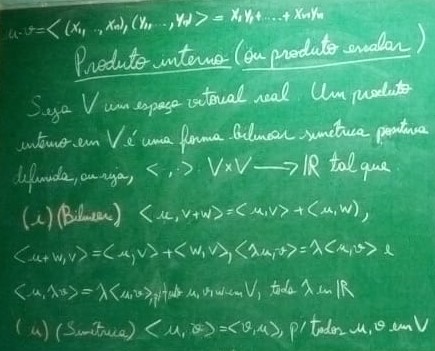 u·v=<(x₁,..,xₙ),(y₁,...,yₙ)> = x₁y₁+....+xₙyₙ
Produto interno (ou produto escalar)
Seja V um espaço vetorial real Um produto
interno em V é uma forma bilinear simétrica positiva
definida, ou seja, < , > : V×V → ℝ tal que
(i) (Bilinear) <u, v+w> = <u,v> + <u,w>,
<u+w,v> = <u,v> + <w,v>, <λu,v> = λ<u,v> e
<u,λv> = λ<u,v>, p/ todo u, v, w em V, todo λ em ℝ
(ii) (Simétrica) <u,v> = <v,u>, p/ todos u, v em V